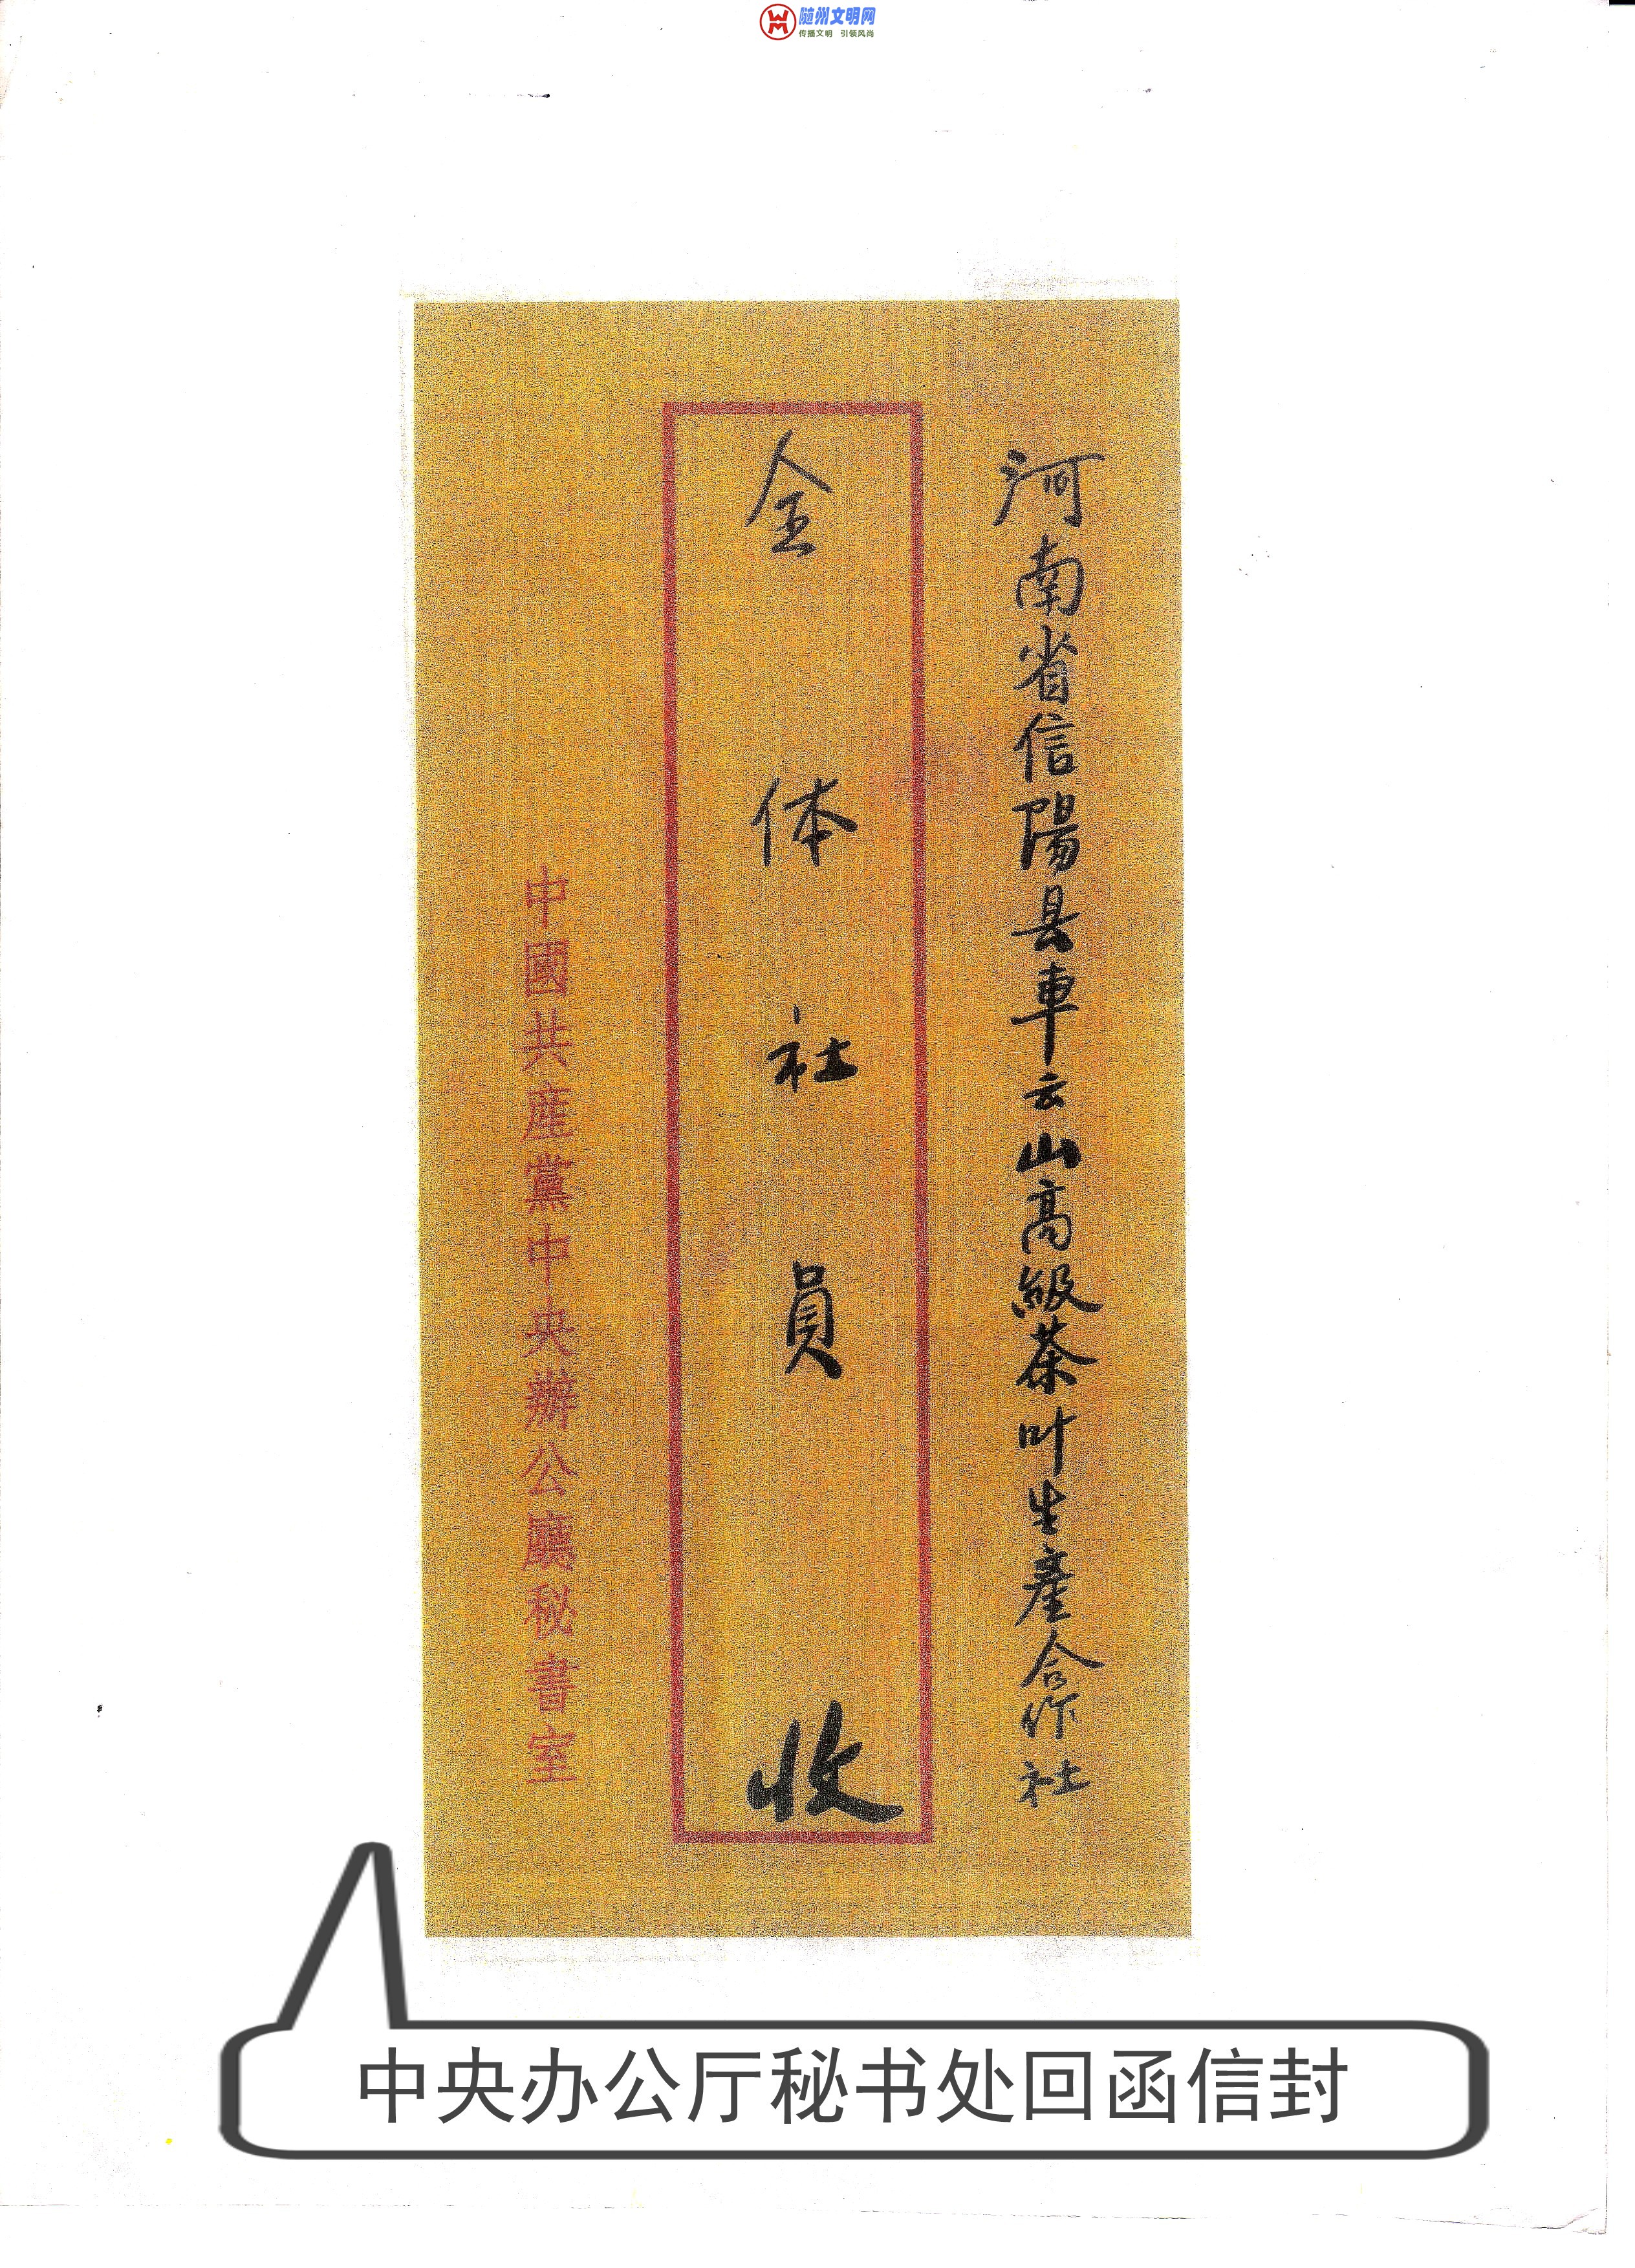 随州文明网
传播文明 引领风尚
河南省信陽县車云山高級茶叶生產合作社
全体社員收
中國共産黨中央辦公廳秘書室
中央办公厅秘书处回函信封